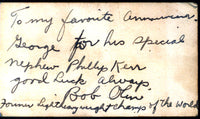 To my favorite Announcer.
George for his special
nephew Phillip Kerr
good luck always.
Bob Olin
Former Lightheavyweight Champ of the World